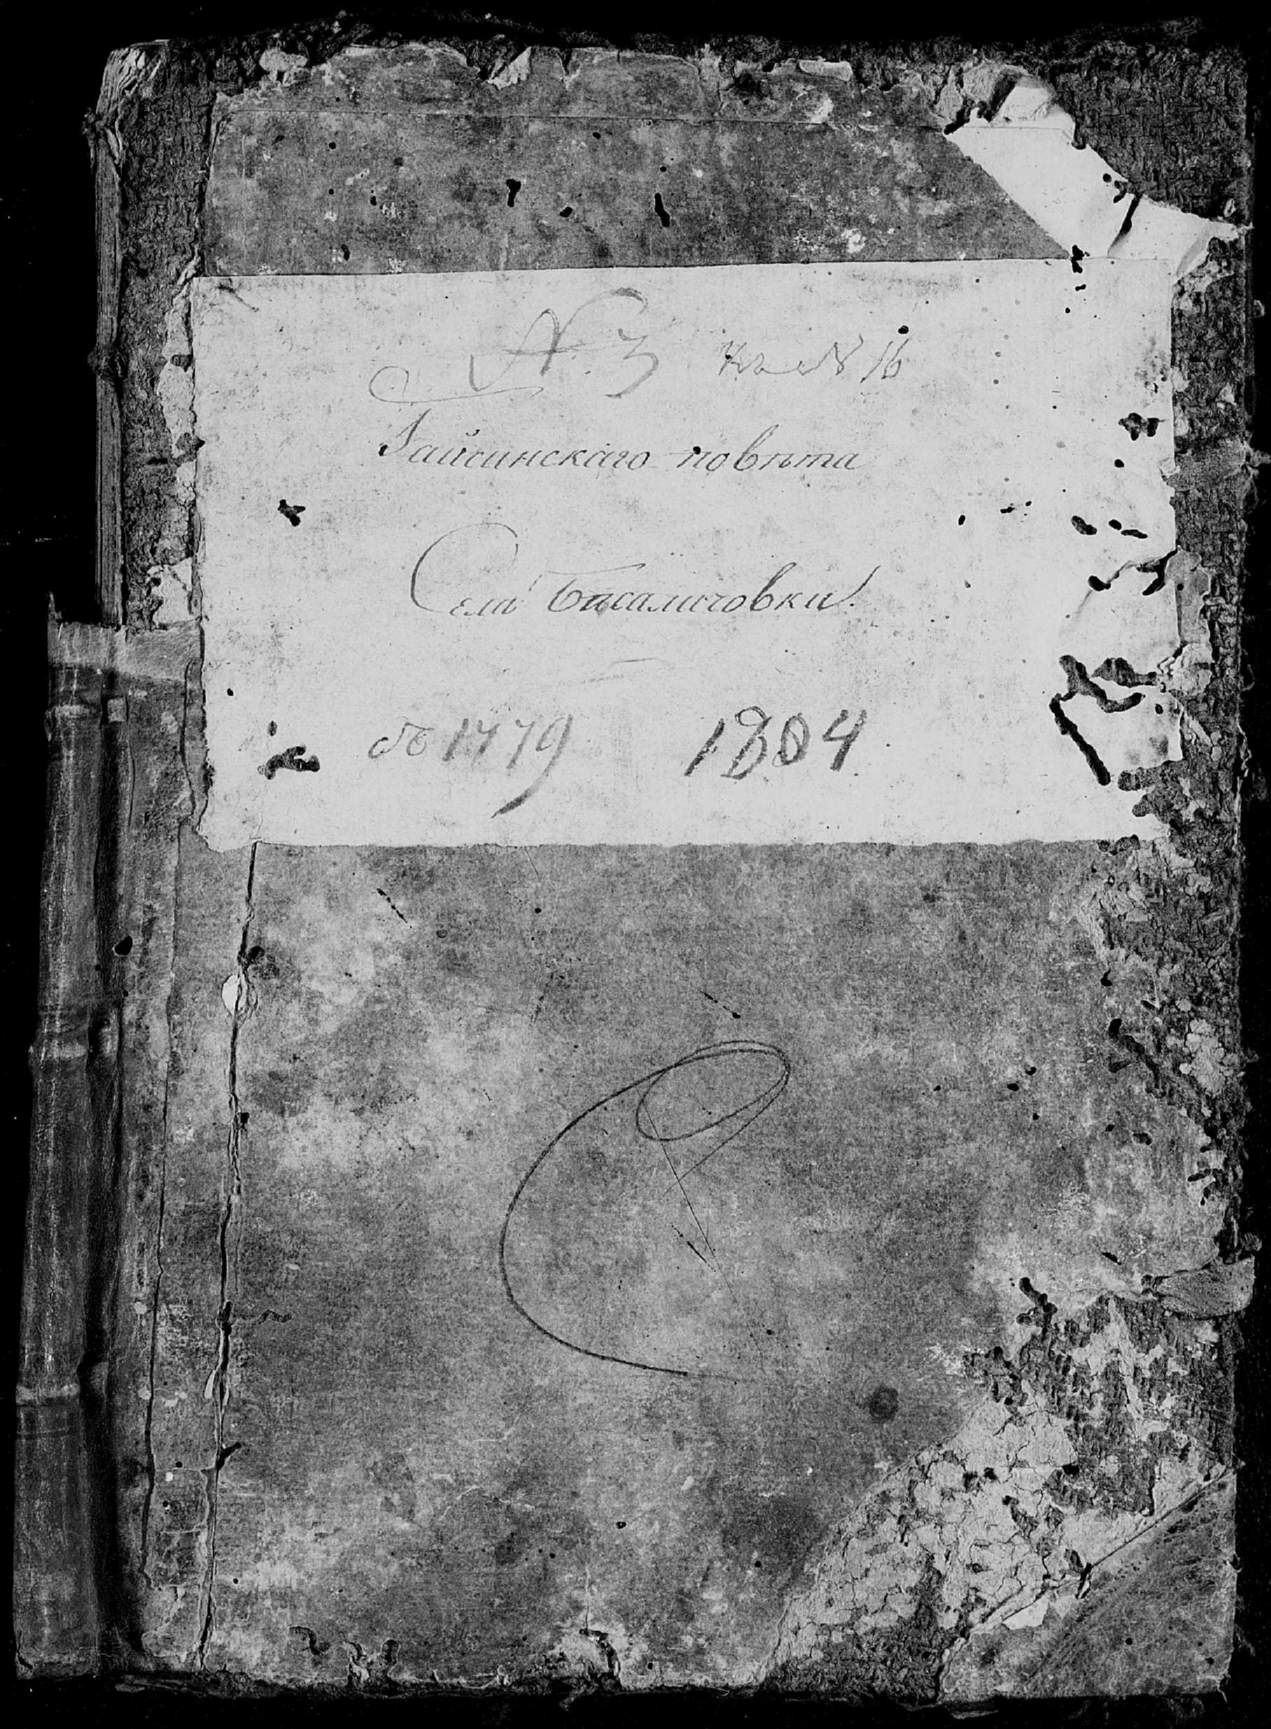 № 3 къ № 16
Гайсинскаго повѣта
Села Басаличовки.
№ 1779 1804